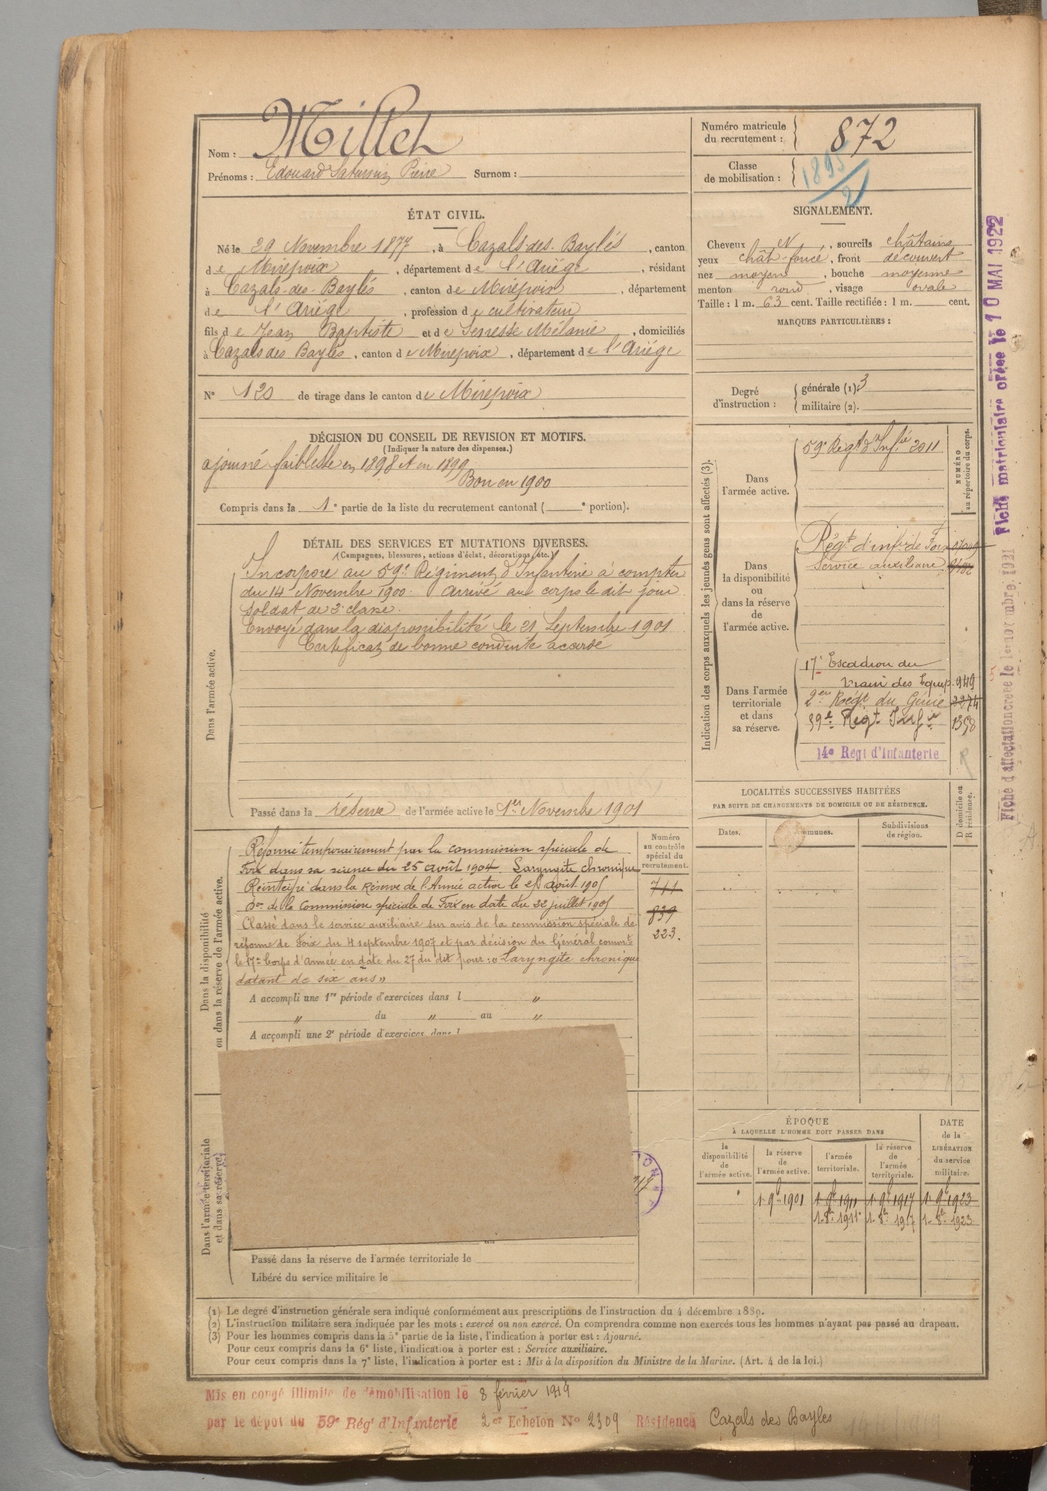 Nom : Millet
Prénoms : Edouard Saturnin Pierre Surnom :
Numéro matricule du recrutement : 872
Classe de mobilisation : 1895/2
ÉTAT CIVIL.
Né le 29 Novembre 1877, à Cazals-des-Baylès, canton
de Mirepoix, département de l'Ariège, résidant
à Cazals-des-Baylès, canton de Mirepoix, département
de l'Ariège, profession de cultivateur
fils de Jean Baptiste et de Mélanie, domiciliés
à Cazals des Baylès, canton de Mirepoix, département de l'Ariège
N° 120 de tirage dans le canton de Mirepoix
SIGNALEMENT.
Cheveux N, sourcils châtains
yeux chât. foncé, front découvert
nez moyen, bouche moyenne
menton rond, visage ovale
Taille : 1 m. 63 cent. Taille rectifiée : 1 m. cent.
MARQUES PARTICULIÈRES :
Degré d'instruction : générale (1) : 3
militaire (2).
DÉCISION DU CONSEIL DE REVISION ET MOTIFS.
(Indiquer la nature des dispenses.)
ajourné faiblesse en 1898 et en 1899
Bon en 1900
Compris dans la 1e partie de la liste du recrutement cantonal ( e portion).
DÉTAIL DES SERVICES ET MUTATIONS DIVERSES.
(Campagnes, blessures, actions d'éclat, décorations, etc.)
Dans l'armée active.
Incorporé au 59e Régiment d'Infanterie à compter
du 14 Novembre 1900. Arrivé au corps le dit jour
soldat de 2e classe.
Envoyé dans la disponibilité le 21 Septembre 1901
Certificat de bonne conduite accordé
Passé dans la réserve de l'armée active le 1er Novembre 1901
Indication des corps auxquels les jeunes gens sont affectés (3).
NUMÉRO au répertoire du corps.
Dans l'armée active.
59e Régt d'Infie 2011
Dans la disponibilité ou dans la réserve de l'armée active.
Régt d'infie de Foix
Service auxiliaire
Dans l'armée territoriale et dans sa réserve.
17e Escadron du
train des Equip. 949
2e Régt du Génie 2274
39e Régt Infie 1358
14e Régt d'Infanterie
R
Fiche matriculaire créée le 10 MAI 1922
Fiche d'affectation créée le
LOCALITÉS SUCCESSIVES HABITÉES
PAR SUITE DE CHANGEMENTS DE DOMICILE OU DE RÉSIDENCE.
Dates. Communes. Subdivisions de région. D. domicile ou R. résidence.
Dans la disponibilité ou dans la réserve de l'armée active.
Numéro au contrôle spécial du recrutement.
Réformé temporairement par la commission spéciale de
Foix dans sa séance du 25 août 1904. Laryngite chronique
Réintégré dans la Réserve de l'Armée active le août 1905
Don de la Commission spéciale de Foix en date du 22 juillet 1905
Classé dans le service auxiliaire sur avis de la commission spéciale de
réforme de Foix du 4 septembre 1907 et par décision du Général commt
le 17e Corps d'Armée en date du 27 du dit pour : « Laryngite chronique
datant de six ans »
711
839
223.
A accompli une 1re période d'exercices dans l "
" du " au "
A accompli une 2e période d'exercices dans l
Dans l'armée territoriale et dans sa réserve.
ÉPOQUE
À LAQUELLE L'HOMME DOIT PASSER DANS
la disponibilité de l'armée active.
la réserve de l'armée active.
l'armée territoriale.
la réserve de l'armée territoriale.
DATE de la LIBÉRATION du service militaire.
" 1 9bre 1901 1 9bre 1911 1 9bre 1917 1 9bre 1923
1 8bre 1911 1 8bre 1917 1 8bre 1923
Passé dans la réserve de l'armée territoriale le
Libéré du service militaire le
(1) Le degré d'instruction générale sera indiqué conformément aux prescriptions de l'instruction du 4 décembre 1889.
(2) L'instruction militaire sera indiquée par les mots : exercé ou non exercé. On comprendra comme non exercés tous les hommes n'ayant pas passé au drapeau.
(3) Pour les hommes compris dans la 5e partie de la liste, l'indication à porter est : Ajourné.
Pour ceux compris dans la 6e liste, l'indication à porter est : Service auxiliaire.
Pour ceux compris dans la 7e liste, l'indication à porter est : Mis à la disposition du Ministre de la Marine. (Art. 4 de la loi.)
Mis en congé illimité de démobilisation le 8 février 1919
par le dépôt du 59e Régt d'Infanterie 2e Echelon N° 2309 Résidence Cazals des Bayles